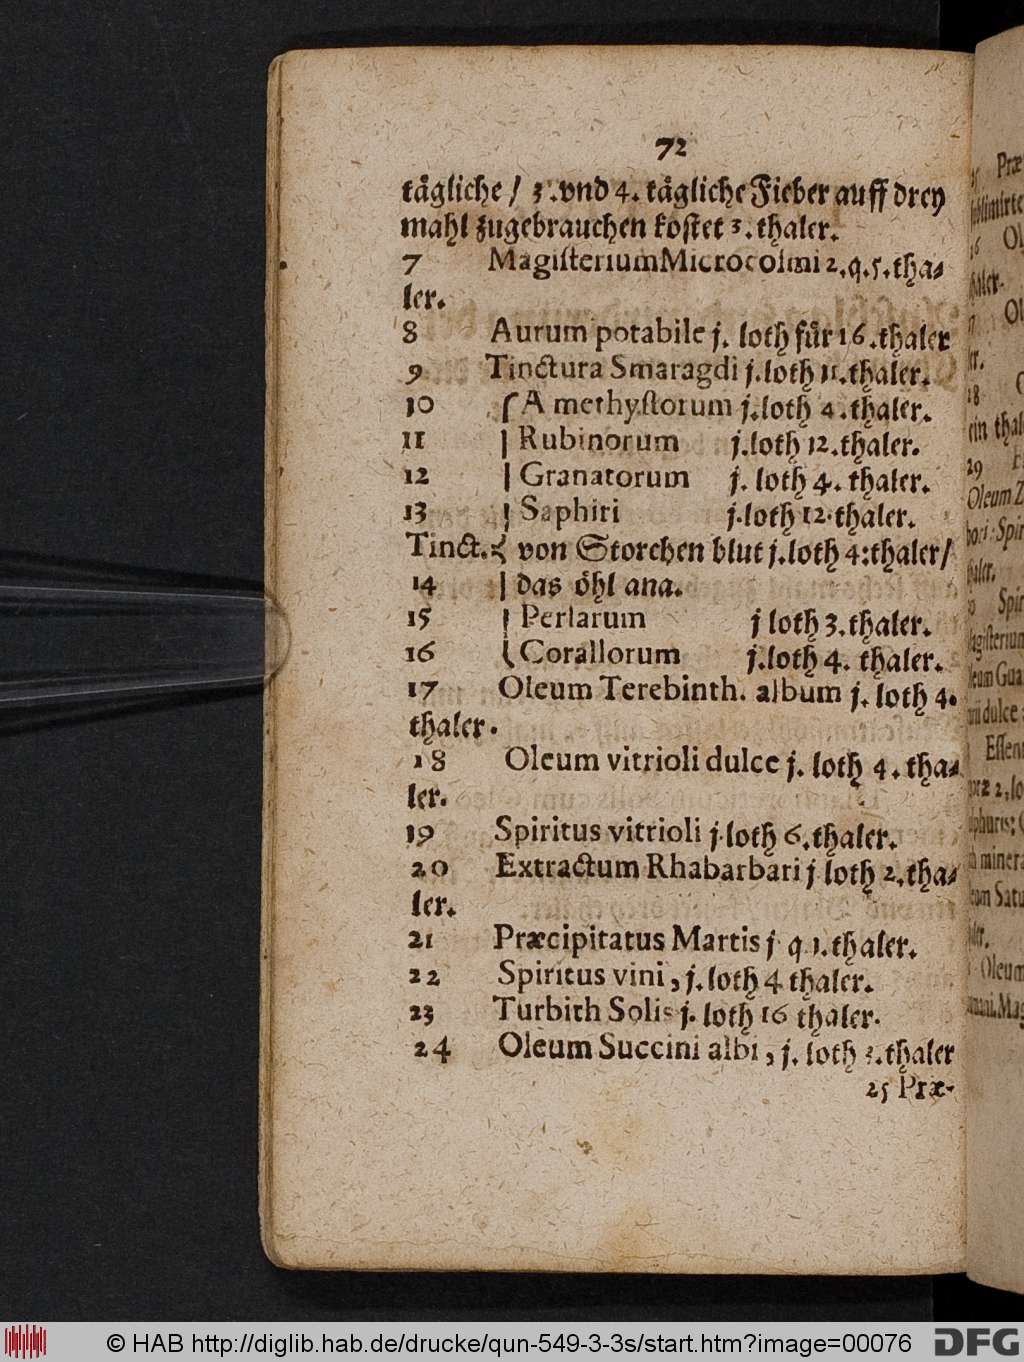 72
tågliche / 3. vnd 4. tågliche Fieber auff drey
mahl zugebrauchen kostet 3. thaler.
7 Magiſterium Microcoſmi 2. q. 5. tha-
ler.
8 Aurum potabile j. loth får 16. thaler
9 Tinctura Smaragdi j. loth 11. thaler.
10 Amethyſtorum j. loth 4. thaler.
11 Rubinorum j. loth 12. thaler.
12 Granatorum j. loth 4. thaler.
13 Saphiri j. loth 12. thaler.
Tinct. von Storchen blut j. loth 4: thaler/
14 das öhl ana.
15 Perlarum j loth 3. thaler.
16 Corallorum j. loth 4. thaler.
17 Oleum Terebinth. album j. loth 4.
thaler.
18 Oleum vitrioli dulce j. loth 4. tha-
ler.
19 Spiritus vitrioli j. loth 6. thaler.
20 Extractum Rhabarbari j loth 2. tha-
ler.
21 Præcipitatus Martis j q 1. thaler.
22 Spiritus vini, j. loth 4 thaler.
23 Turbith Solis j. loth 16 thaler.
24 Oleum Succini albi, j. loth 3. thaler
25 Præ-
© HAB http://diglib.hab.de/drucke/qun-549-3-3s/start.htm?image=00076
DFG